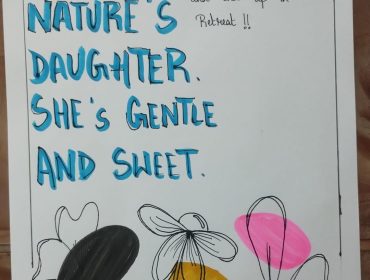 NATURE'S
DAUGHTER.
SHE'S GENTLE
AND SWEET.
up in
Retreat !!